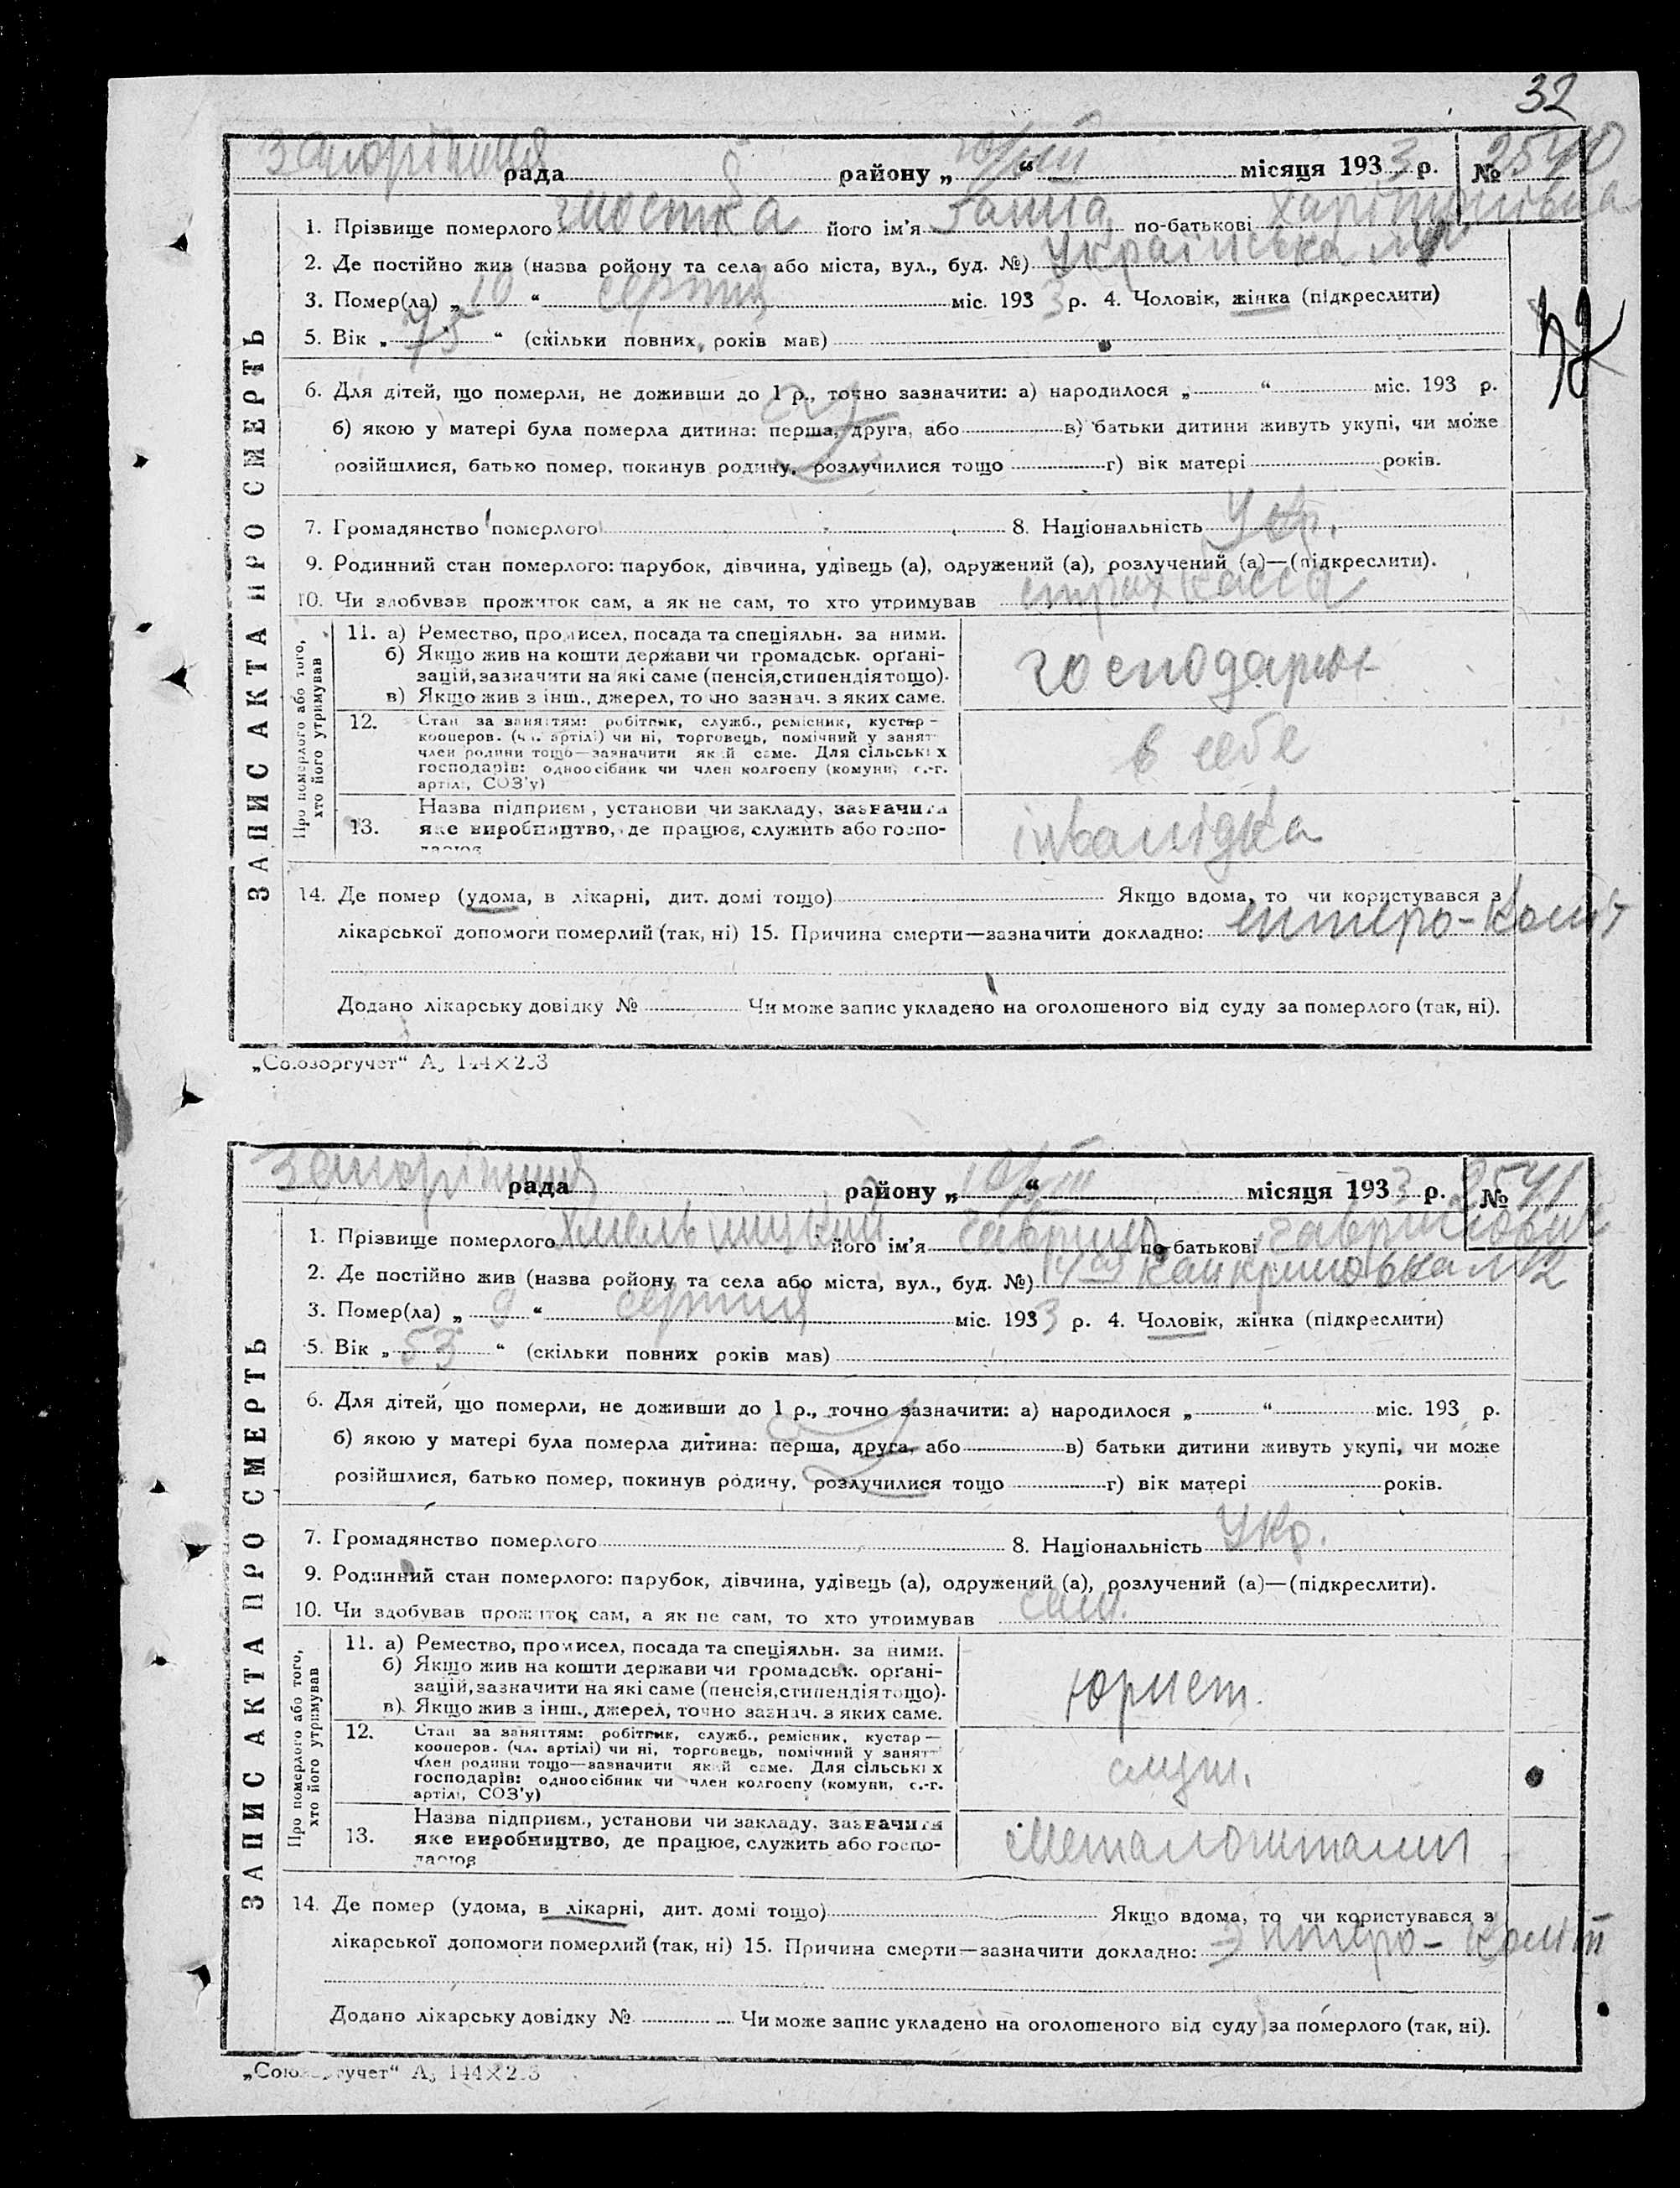 32
рада району „10/VIII“ місяця 1933 р. № 2540
1. Прізвище померлого його ім'я Ганна по-батькові Харітонівна
2. Де постійно жив (назва ройону та села або міста, вул., буд. №) Українська
3. Помер(ла) „10“ серпня міс. 1933 р. 4. Чоловік, жінка (підкреслити)
5. Вік „75“ (скільки повних років мав)
6. Для дітей, що померли, не доживши до 1 р., точно зазначити: а) народилося „ “ міс. 193 р.
б) якою у матері була померла дитина: перша, друга, або в) батьки дитини живуть укупі, чи може
розійшлися, батько помер, покинув родину, розлучилися тощо г) вік матері років.
7. Громадянство померлого 8. Національність Укр.
9. Родинний стан померлого: парубок, дівчина, удівець (а), одружений (а), розлучений (а)—(підкреслити).
10. Чи здобував прожиток сам, а як не сам, то хто утримував страхкасса
ЗАПИС АКТА ПРО СМЕРТЬ
Про померлого або того, хто його утримував
11. а) Ремество, промисел, посада та спеціяльн. за ними.
б) Якщо жив на кошти держави чи громадськ. орґані-
зацій, зазначити на які саме (пенсія, стипендія тощо).
в) Якщо жив з інш., джерел, точно зазнач. з яких саме.
12. Стан за заняттям: робітник, служб., ремісник, кустар—
кооперов. (чл. артілі) чи ні, торговець, помічний у занят
член родини тощо—зазначити який саме. Для сільських
господарів: одноосібник чи член колгоспу (комуни, с.-г.
артілі, СОЗ'у)
в себе
Назва підприєм., установи чи закладу, зазначити
13. яке виробництво, де працює, служить або госпо-
дарює
інвалідка
14. Де помер (удома, в лікарні, дит. домі тощо) Якщо вдома, то чи користувався з
лікарської допомоги померлий (так, ні) 15. Причина смерти—зазначити докладно: ентеро-коліт
Додано лікарську довідку № Чи може запис укладено на оголошеного від суду за померлого (так, ні).
„Союзоргучет“ А₅ 144×203
рада району „10/VIII“ місяця 1933 р. № 2541
1. Прізвище померлого Хмельницкий його ім'я Гаврило по-батькові Гаврилович
2. Де постійно жив (назва ройону та села або міста, вул., буд. №)
3. Помер(ла) „9“ серпня міс. 1933 р. 4. Чоловік, жінка (підкреслити)
5. Вік „53“ (скільки повних років мав)
6. Для дітей, що померли, не доживши до 1 р., точно зазначити: а) народилося „ “ міс. 193 р.
б) якою у матері була померла дитина: перша, друга, або в) батьки дитини живуть укупі, чи може
розійшлися, батько помер, покинув родину, розлучилися тощо г) вік матері років.
7. Громадянство померлого 8. Національність Укр.
9. Родинний стан померлого: парубок, дівчина, удівець (а), одружений (а), розлучений (а)—(підкреслити).
10. Чи здобував прожиток сам, а як не сам, то хто утримував сам.
ЗАПИС АКТА ПРО СМЕРТЬ
Про померлого або того, хто його утримував
11. а) Ремество, промисел, посада та спеціяльн. за ними.
б) Якщо жив на кошти держави чи громадськ. орґані-
зацій, зазначити на які саме (пенсія, стипендія тощо).
в) Якщо жив з інш., джерел, точно зазнач. з яких саме.
юрист.
12. Стан за заняттям: робітник, служб., ремісник, кустар—
кооперов. (чл. артілі) чи ні, торговець, помічний у занят
член родини тощо—зазначити який саме. Для сільських
господарів: одноосібник чи член колгоспу (комуни, с.-г.
артілі, СОЗ'у)
служ.
Назва підприєм., установи чи закладу, зазначити
13. яке виробництво, де працює, служить або госпо-
дарює
14. Де помер (удома, в лікарні, дит. домі тощо) Якщо вдома, то чи користувався з
лікарської допомоги померлий (так, ні) 15. Причина смерти—зазначити докладно: Энтеро-коліт
Додано лікарську довідку № Чи може запис укладено на оголошеного від суду за померлого (так, ні).
„Союзоргучет“ А₅ 144×203